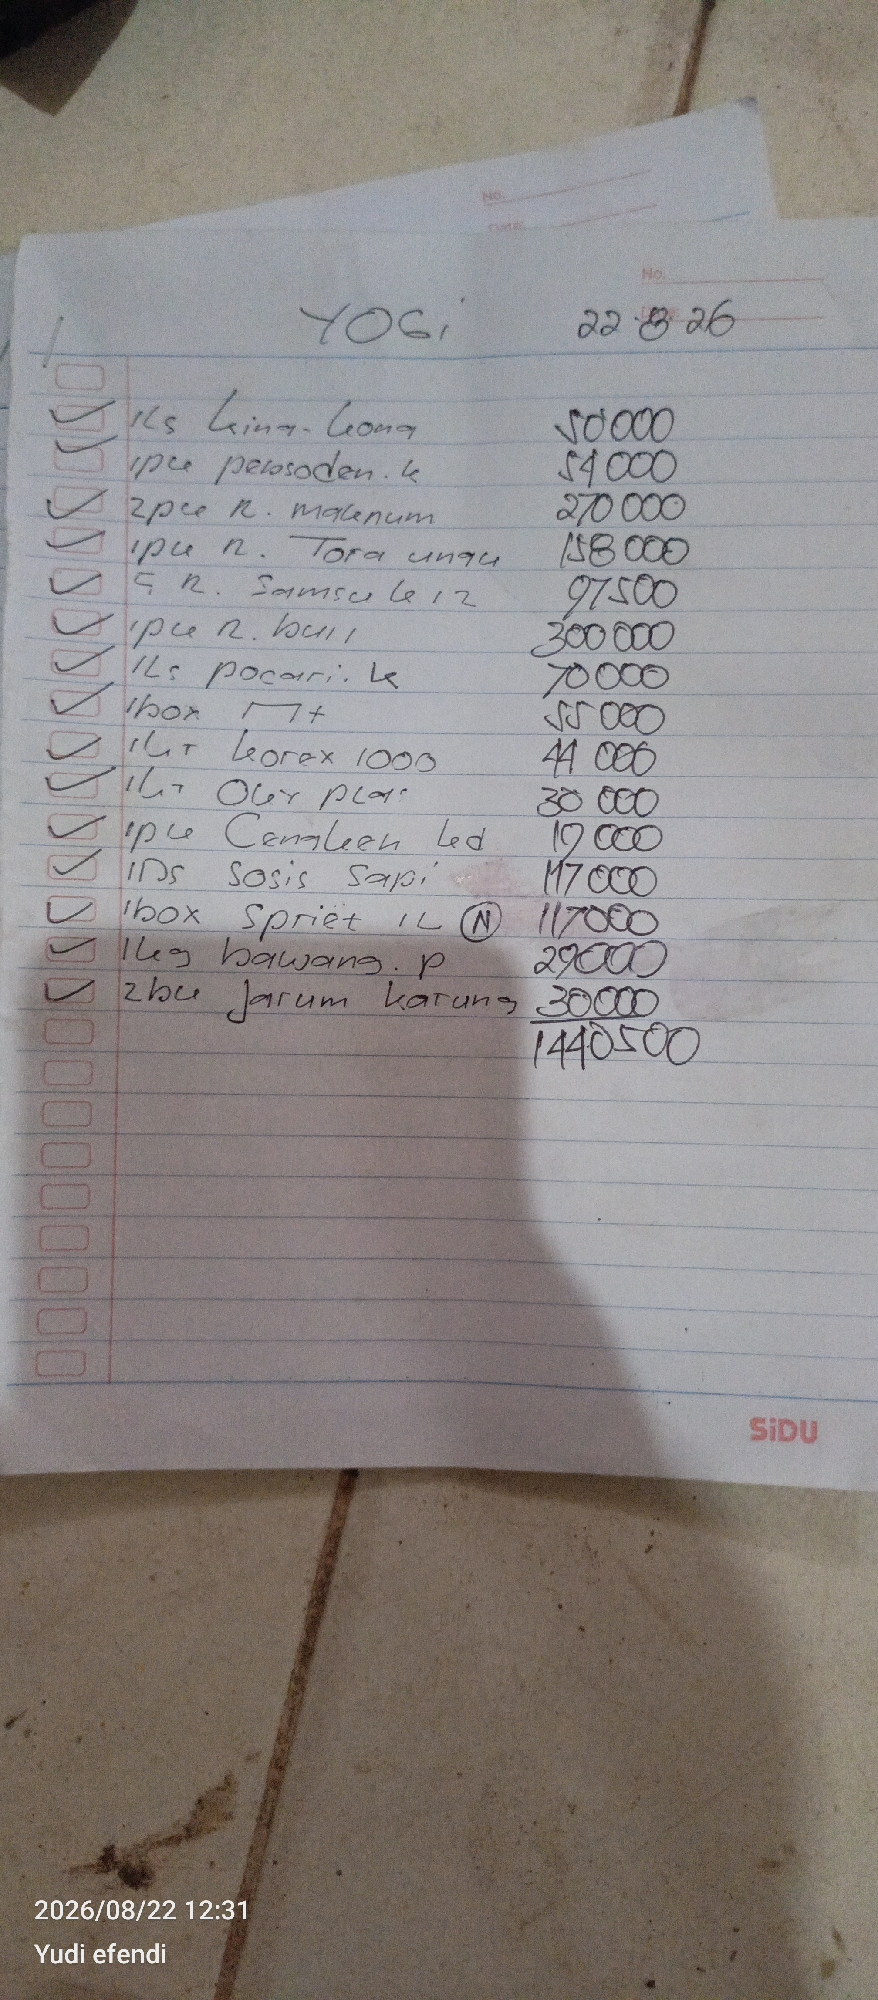 No.
No.
YOGi 22-8-26
1Ks king-kong 50000
1pk pewsoden.k 54000
2pk R. makenum 270000
1pk R. Tora ungu 158000
5 R. Samsu k 12 97500
1pk R. bull 300000
1Ks pocari.k 70000
1box 55000
1kr korex 1000 44000
1kr Oky 30000
1pk Cengkeh ked 19000
1Ds Sosis Sapi 117000
1box Spriet 1L N 117000
1kg bawang.p 29000
2bk jarum karung 30000
1440500
SiDU
2026/08/22 12:31
Yudi efendi